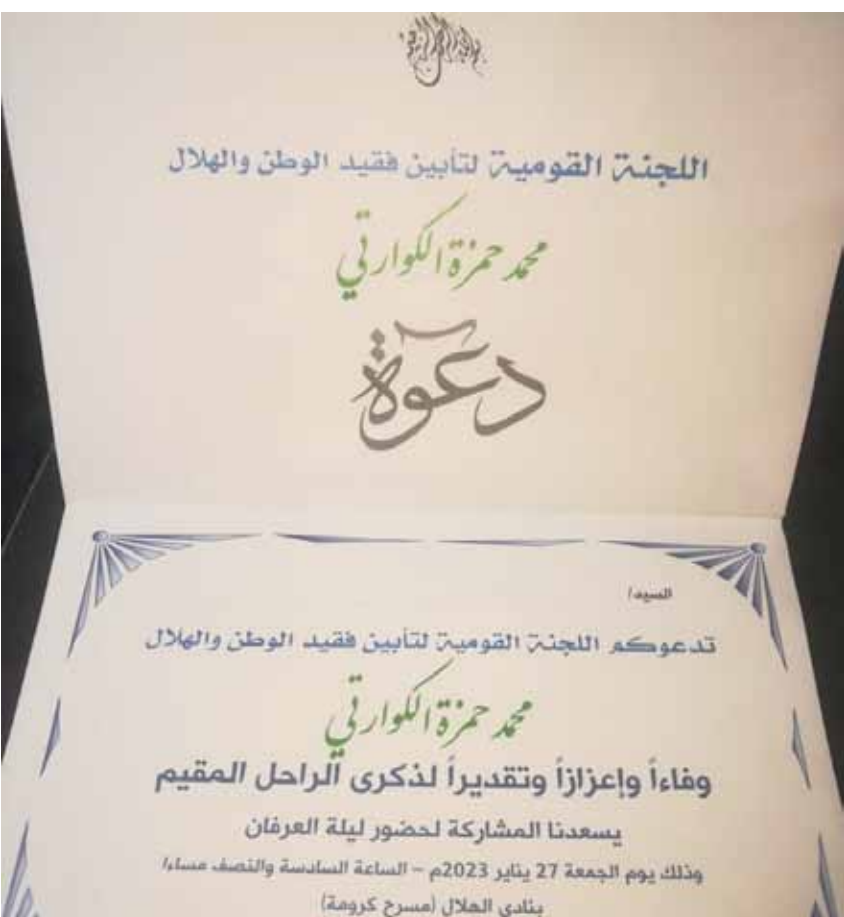 بسم الله الرحمن الرحيم
اللجنة القومية لتأبين فقيد الوطن والهلال
محمد حمزة الكوارتي
دعوة
السيد/
تدعوكم اللجنة القومية لتأبين فقيد الوطن والهلال
محمد حمزة الكوارتي
وفاءاً وإعزازاً وتقديراً لذكرى الراحل المقيم
يسعدنا المشاركة لحضور ليلة العرفان
وذلك يوم الجمعة 27 يناير 2023م – الساعة السادسة والنصف مساءا
بنادي الهلال (مسرح كرومة)